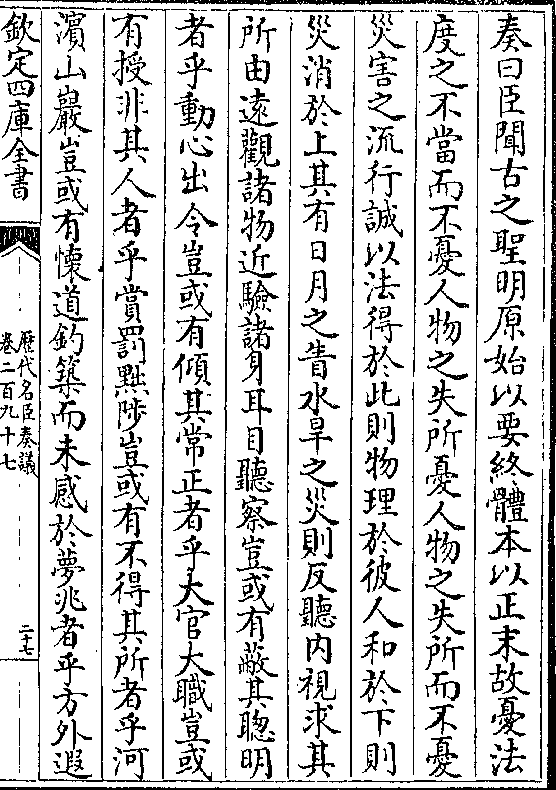 奏曰臣聞古之聖明原始以要終體本以正末故憂法
度之不當而不憂人物之失所憂人物之失所而不憂
災害之流行誠以法得於此則物理於彼人和於下則
災消於上其有日月之眚水旱之災則反聽内視求其
所由遠觀諸物近驗諸身耳目聽察豈或有蔽其聰明
者乎動心出令豈或有傾其常正者乎大官大職豈或
有授非其人者乎賞罰黜陟豈或有不得其所者乎河
濱山巖豈或有懐道釣築而未感於夢兆者乎方外遐
欽定四庫全書
歴代名臣奏議
卷二百九十七
二十七